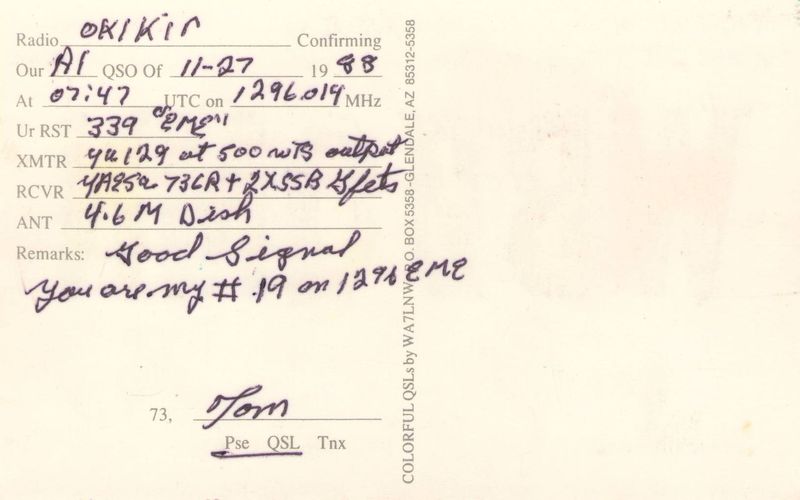 Radio OK1KIR Confirming
Our A1 QSO Of 11-27 1988
At 07:47 UTC on 1296.019 MHz
Ur RST 339 "EME"
XMTR at 500 wTS output
RCVR 736R + 2XSSB Gfets
ANT 4.6 M Dish
Remarks: Good Signal
You are my # 19 on 1296 EME
73, Tom
Pse QSL Tnx
COLORFUL QSLs by WA7LNW P.O. BOX 5358-GLENDALE, AZ 85312-5358